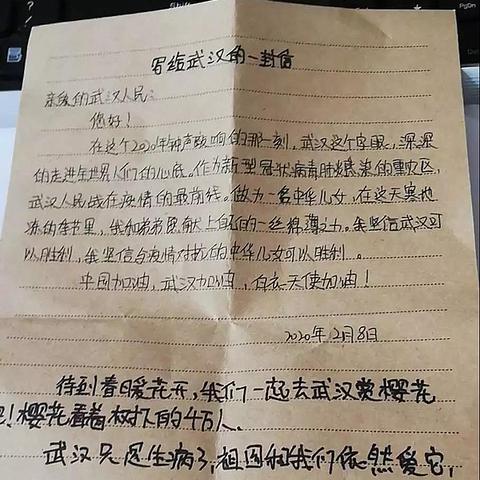 写给武汉的一封信
亲爱的武汉人民：
您好！
在这个2020年钟声敲响的那一刻，武汉这个字眼，深深
的走进全世界人们的心底。作为新型冠状病毒肺炎感染的重灾区，
武汉人民战在疫情的最前线。做为一名中华儿女，在这天寒地
冻的季节里，我和弟弟贡献上自己的一丝绵薄之力。我坚信武汉可
以胜利，我坚信与疫情对抗的中华儿女可以胜利。
中国加油，武汉加油，白衣天使加油！
2020年2月8日
待到春暖花开，我们一起去武汉赏樱花
吧！樱花看着树下的4万人、
武汉只是生病了，祖国和我们依然爱它，